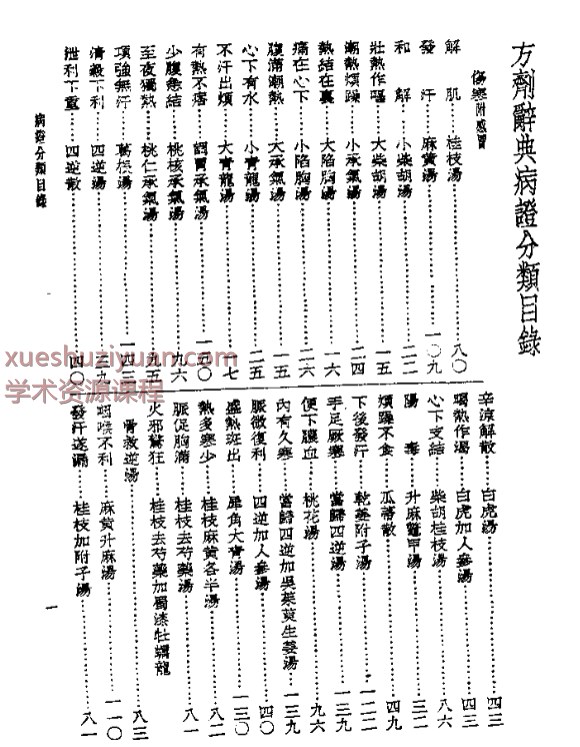 方劑辭典病證分類目錄
傷寒附感冒
解肌 桂枝湯 八〇
發汗 麻黃湯 一〇九
和解 小柴胡湯 二二
壯熱作嘔 大柴胡湯 一五
潮熱煩躁 小承氣湯 二四
熱結在裏 大陷胸湯 一六
痛在心下 小陷胸湯 二六
腹滿潮熱 大承氣湯 一五
心下有水 小青龍湯 二五
不汗出煩 大青龍湯 一七
有熱不痞 調胃承氣湯 一五〇
少腹急結 桃核承氣湯 九六
至夜獨熱 桃仁承氣湯 九五
項強無汗 葛根湯 一四三
清穀下利 四逆湯 三九
泄利下重 四逆散 四〇
辛涼解散 白虎湯 四三
蒸熱作渴 白虎加人參湯 四三
心下支結 柴胡桂枝湯 八六
陽毒 升麻鼈甲湯 三二
煩躁不食 瓜蒂散 四九
下後發汗 乾姜附子湯 一二二
手足厥寒 當歸四逆湯 一三九
便下膿血 桃花湯 九六
內有久寒 當歸四逆加吳茱萸生姜湯 一三九
脈微復利 四逆加人參湯 四〇
盛熱斑出 犀角大青湯 一三〇
熱多寒少 桂枝麻黃各半湯 八二
脈促胸滿 桂枝去芍藥湯 八一
火邪驚狂 桂枝去芍藥加蜀漆牡蠣龍
骨救逆湯 八三
咽喉不利 麻黃升麻湯 一一〇
發汗遂漏 桂枝加附子湯 八一
病證分類目錄
一
xueshuziyuan.com
学术资源课程